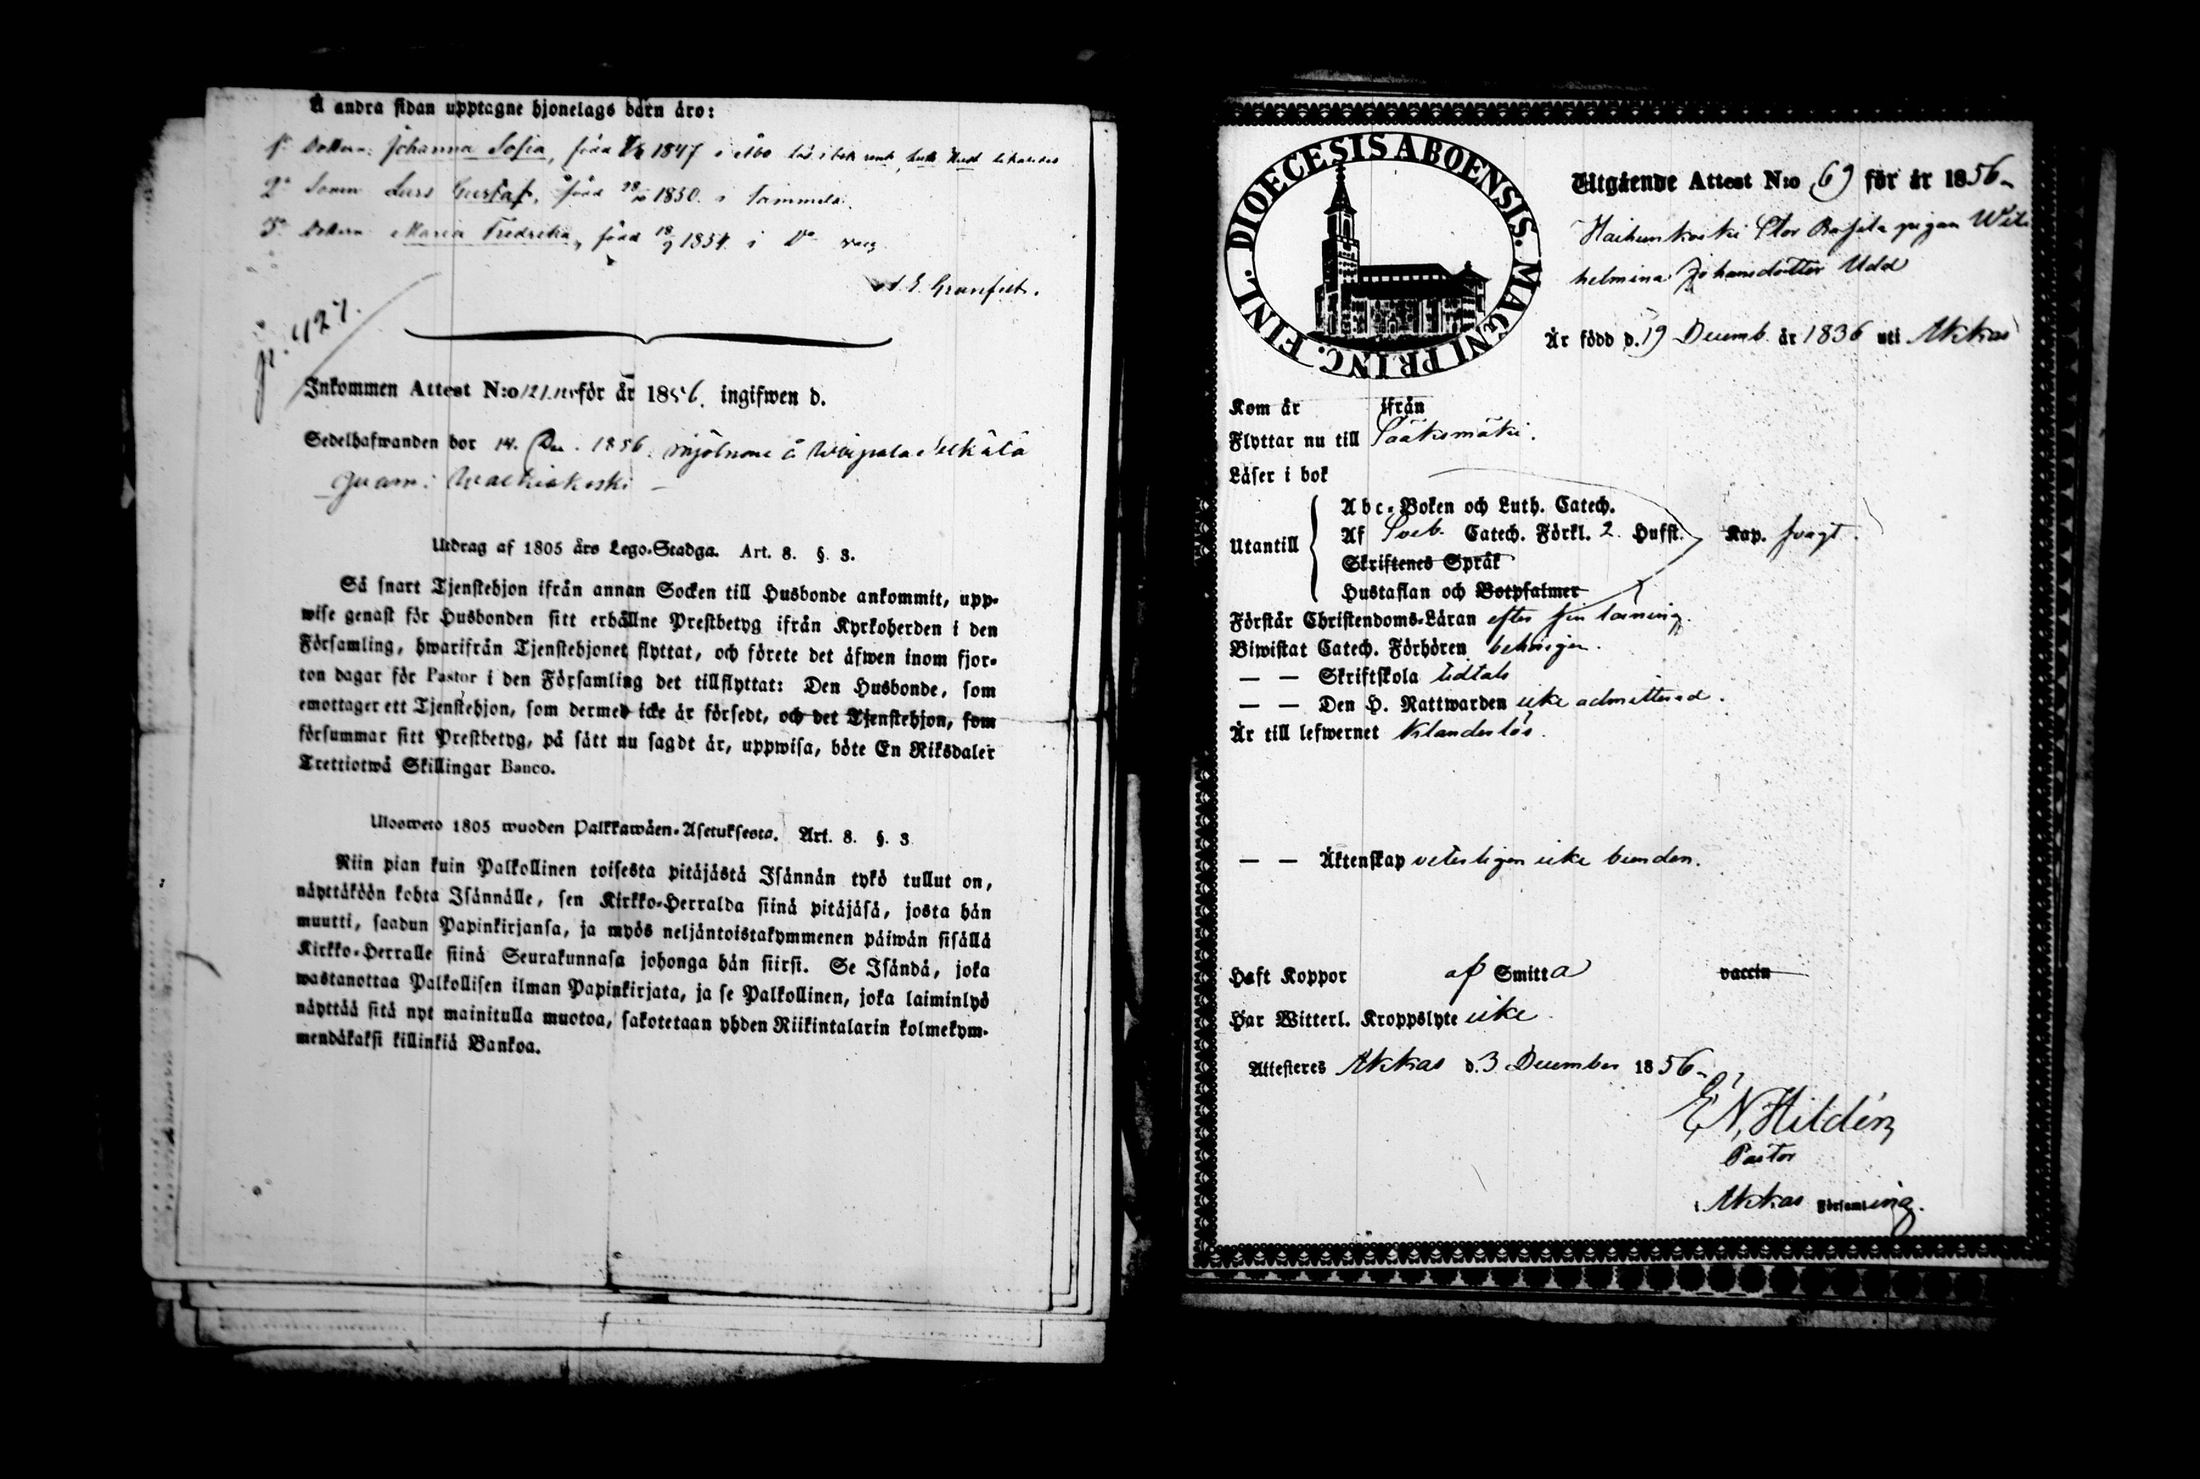 Å andra sidan upptagne hjonelags barn äro:
1º Dottern: Johanna Sofia, född 1847 i Åbo
2º Sonen Lars Gustaf, född 28 1850 i Tammela
3º Dottern Maria Fredrika, född 18/9 1854 i Dº
Granfelt.
p. 427.
Inkommen Attest N:o 121 för år 1856. ingifwen d.
Sedelhafwanden bor 14. Dec. 1856. mjölnare å
Uidrag af 1805 års Lego-Stadga. Art. 8. §. 3.
Så snart Tjenstehjon ifrån annan Socken till Husbonde ankommit, upp-
wise genast för Husbonden sitt erhållne Prestbetyg ifrån Kyrkoherden i den
Församling, hwarifrån Tjenstehjonet flyttat, och förete det äfwen inom fjor-
ton dagar för Pastor i den Församling det tillflyttat: Den Husbonde, som
emottager ett Tjenstehjon, som dermed icke är försedt, och det Tjenstehjon, som
försummar sitt Prestbetyg, på sätt nu sagdt är, uppwisa, böte En Riksdaler
Trettiotwå Skillingar Banco.
Ulosweto 1805 wuoden Palkkawäen-Asetuksesta. Art. 8. §. 3
Niin pian kuin Palkollinen toisesta pitäjästä Isännän tykö tullut on,
näyttäköön kohta Isännälle, sen Kirkko-Herralda siinä pitäjäsä, josta hän
muutti, saadun Papinkirjansa, ja myös neljäntoistakymmenen päiwän sisällä
Kirkko-Herralle siinä Seurakunnasa johonga hän siirsi. Se Isändä, joka
wastanottaa Palkollisen ilman Papinkirjata, ja se Palkollinen, joka laiminlyö
näyttää sitä nyt mainitulla muotoa, sakotetaan yhden Riikintalarin kolmekym-
mendäkaksi killinkiä Bankoa.
DIOECESIS ABOENSIS. MAGNI PRINC. FINL.
Utgående Attest N:o 69 för år 1856
Haihunkoski Stor Rassila pigan Wil
helmina Johansdotter Udd
Är född d. 19 Decemb. år 1836 uti Akkas
Kom år ifrån
Flyttar nu till Sääksmäki.
Läser i bok
Utantill
Abc-Boken och Luth. Catech.
Af Sveb. Catech. Förkl. 2. Hufst. Kap. svagt.
Skriftenes Språk
Hustaflan och Botpsalmer
Förstår Christendoms-Läran efter sin läsning.
Biwistat Catech. Förhören behörigen.
— — Skriftskola tidtals
— — Den H. Nattwarden icke admitterad.
Är till lefwernet klanderlös.
— — Äktenskap veterligen icke bunden.
Haft Koppor af Smitta vaccin
Har Witterl. Kroppslyte icke
Attesteres Akkas d. 3 December 1856
E. N. Hildén
Pastor
i Akkas Församling.